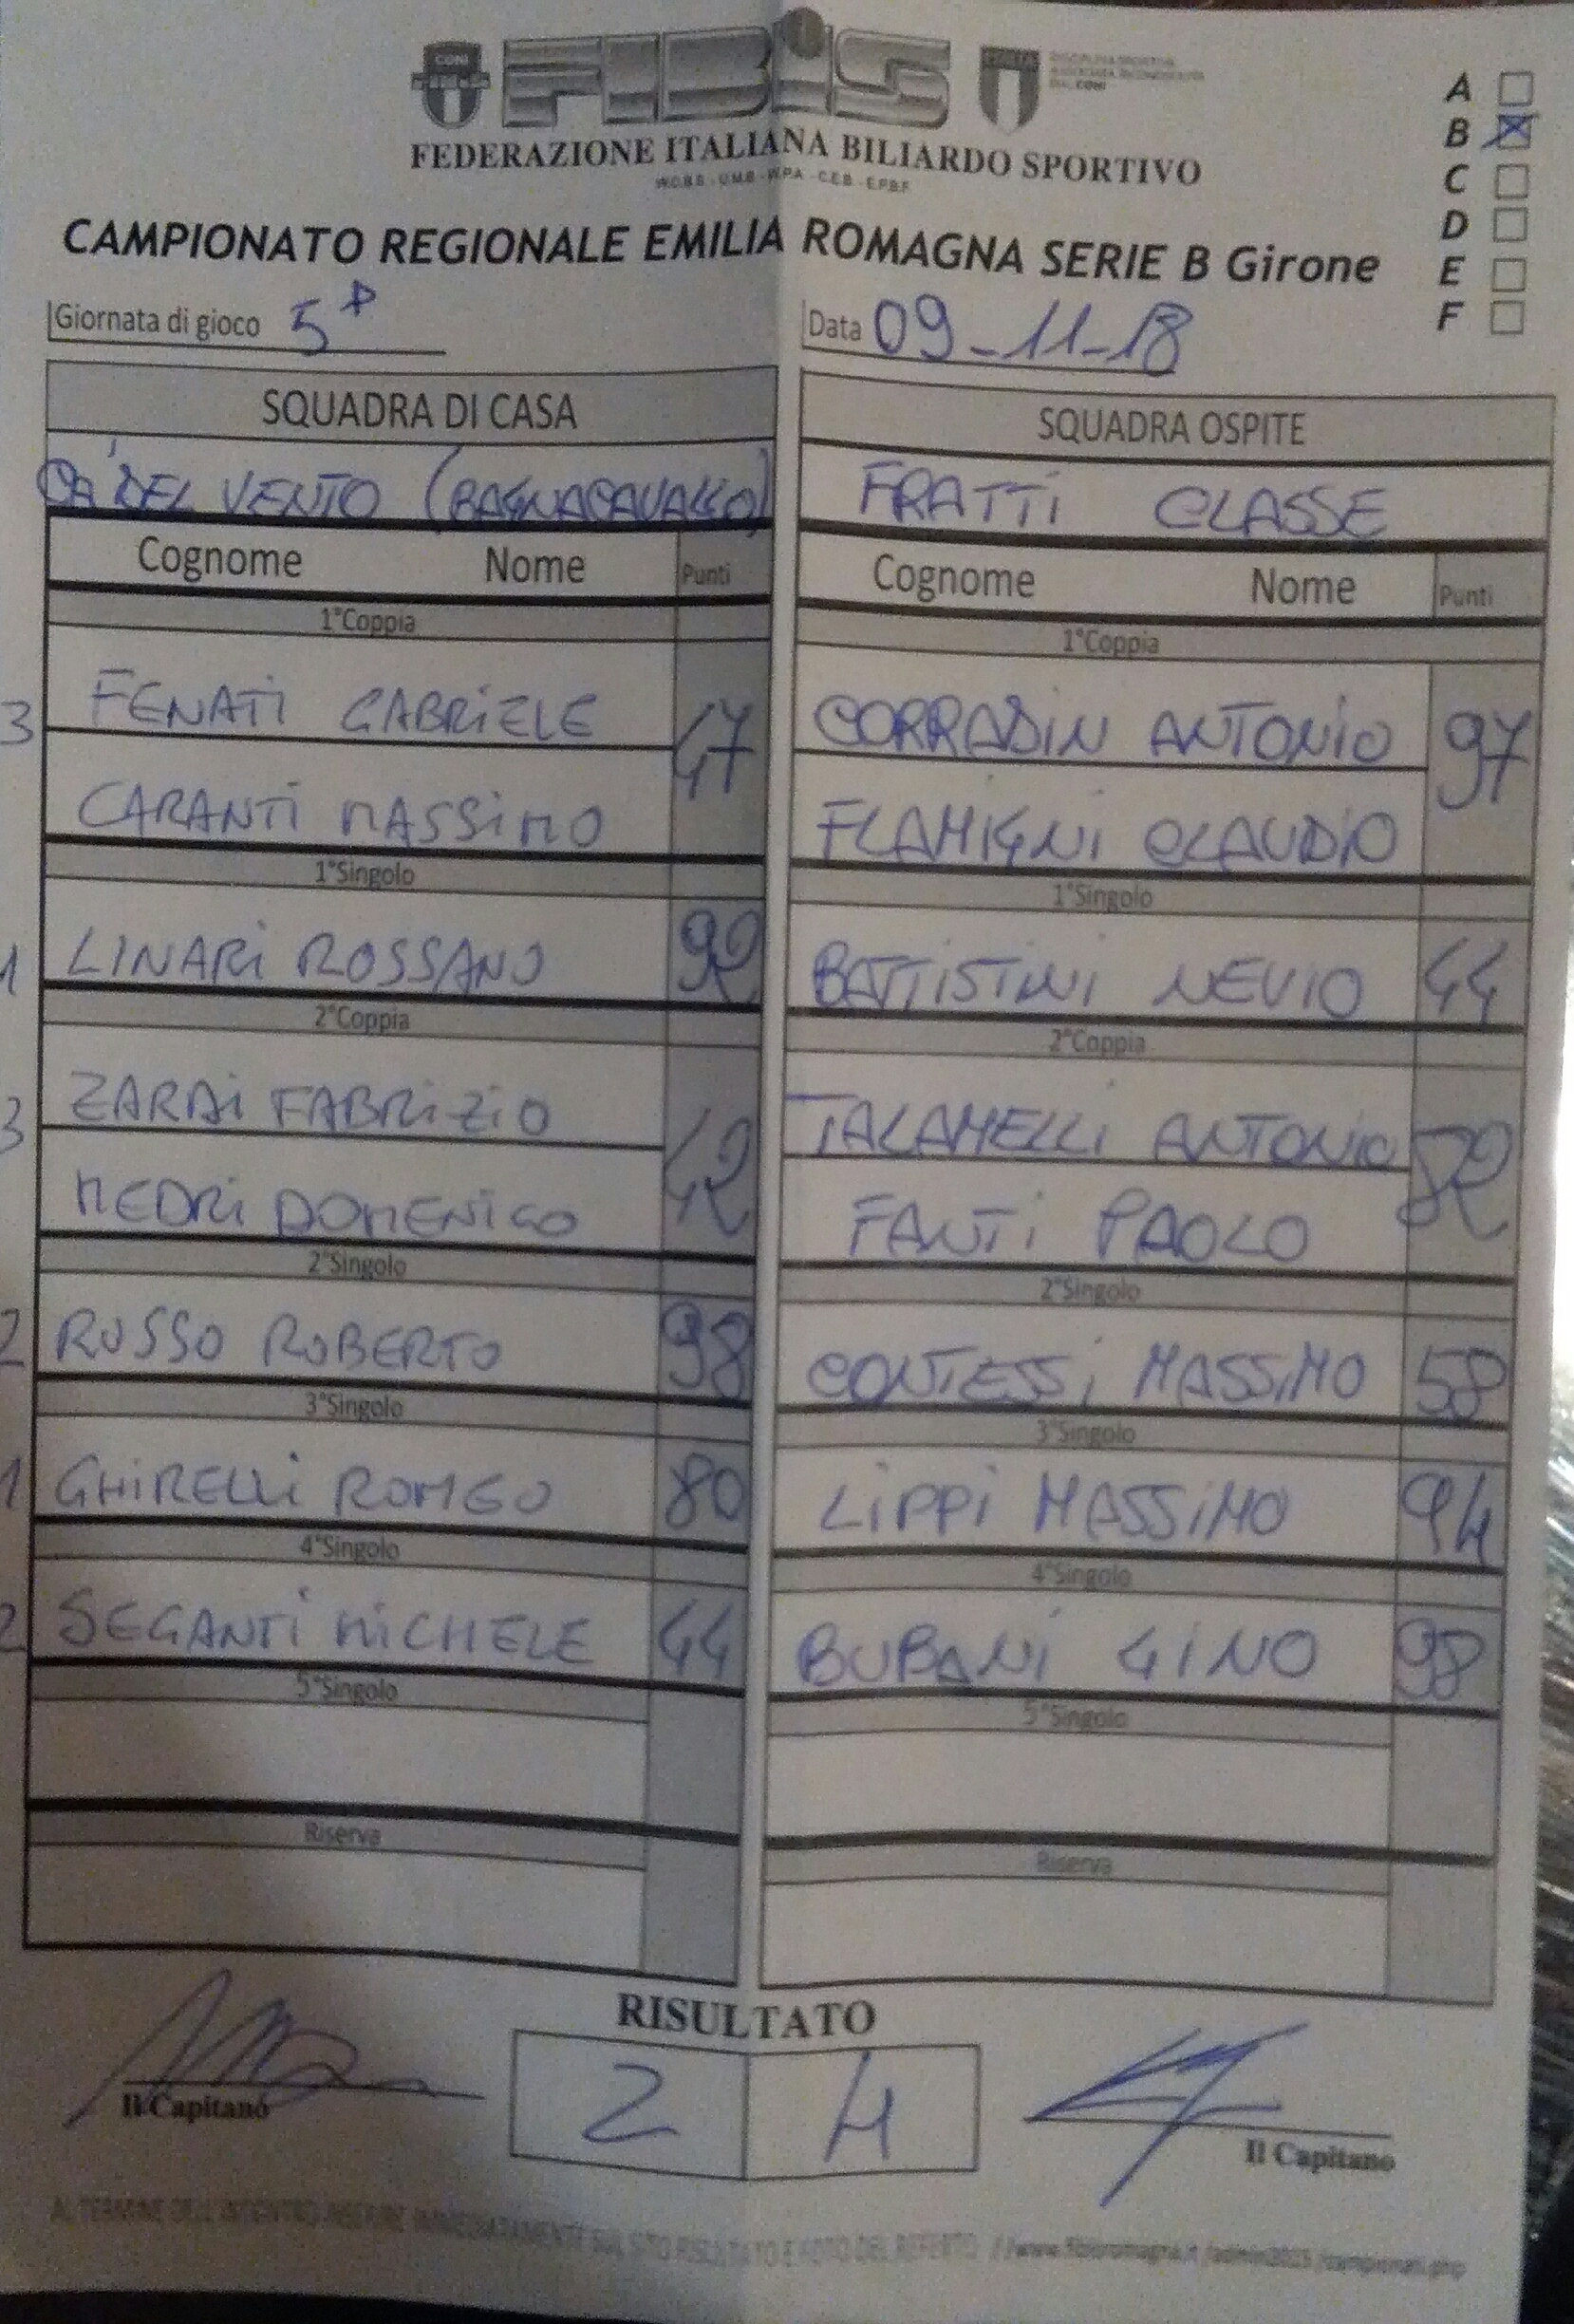 CONI
FIBiS
FEDERAZIONE ITALIANA BILIARDO SPORTIVO
W.C.B.S - U.M.B - W.P.A - C.E.B - E.P.B.F
CAMPIONATO REGIONALE EMILIA ROMAGNA SERIE B Girone
A
B
C
D
E
F
Giornata di gioco 5ª
Data 09-11-18
SQUADRA DI CASA
CA' DEL VENTO (BAGNACAVALLO)
Cognome Nome Punti
1°Coppia
3 FENATI GABRIELE 47
CARANTI MASSIMO
1°Singolo
1 LINARI ROSSANO 92
2°Coppia
3 ZARDI FABRIZIO 42
MEDRI DOMENICO
2°Singolo
2 RUSSO ROBERTO 98
3°Singolo
1 GHIRELLI ROMEO 80
4°Singolo
2 SEGANTI MICHELE 44
5°Singolo
Riserva
SQUADRA OSPITE
FRATTI CLASSE
Cognome Nome Punti
1°Coppia
CORRADIN ANTONIO 97
FLAMIGNI CLAUDIO
1°Singolo
BATTISTINI NEVIO 44
2°Coppia
TALAMELLI ANTONIO 82
FANTI PAOLO
2°Singolo
CONTESSI MASSIMO 58
3°Singolo
LIPPI MASSIMO 94
4°Singolo
BUBANI GINO 98
5°Singolo
Riserva
RISULTATO
2 4
Il Capitano
Il Capitano
AL TERMINE DELL'INCONTRO INSERIRE IMMEDIATAMENTE SUL SITO RISULTATO E FOTO DEL REFERTO